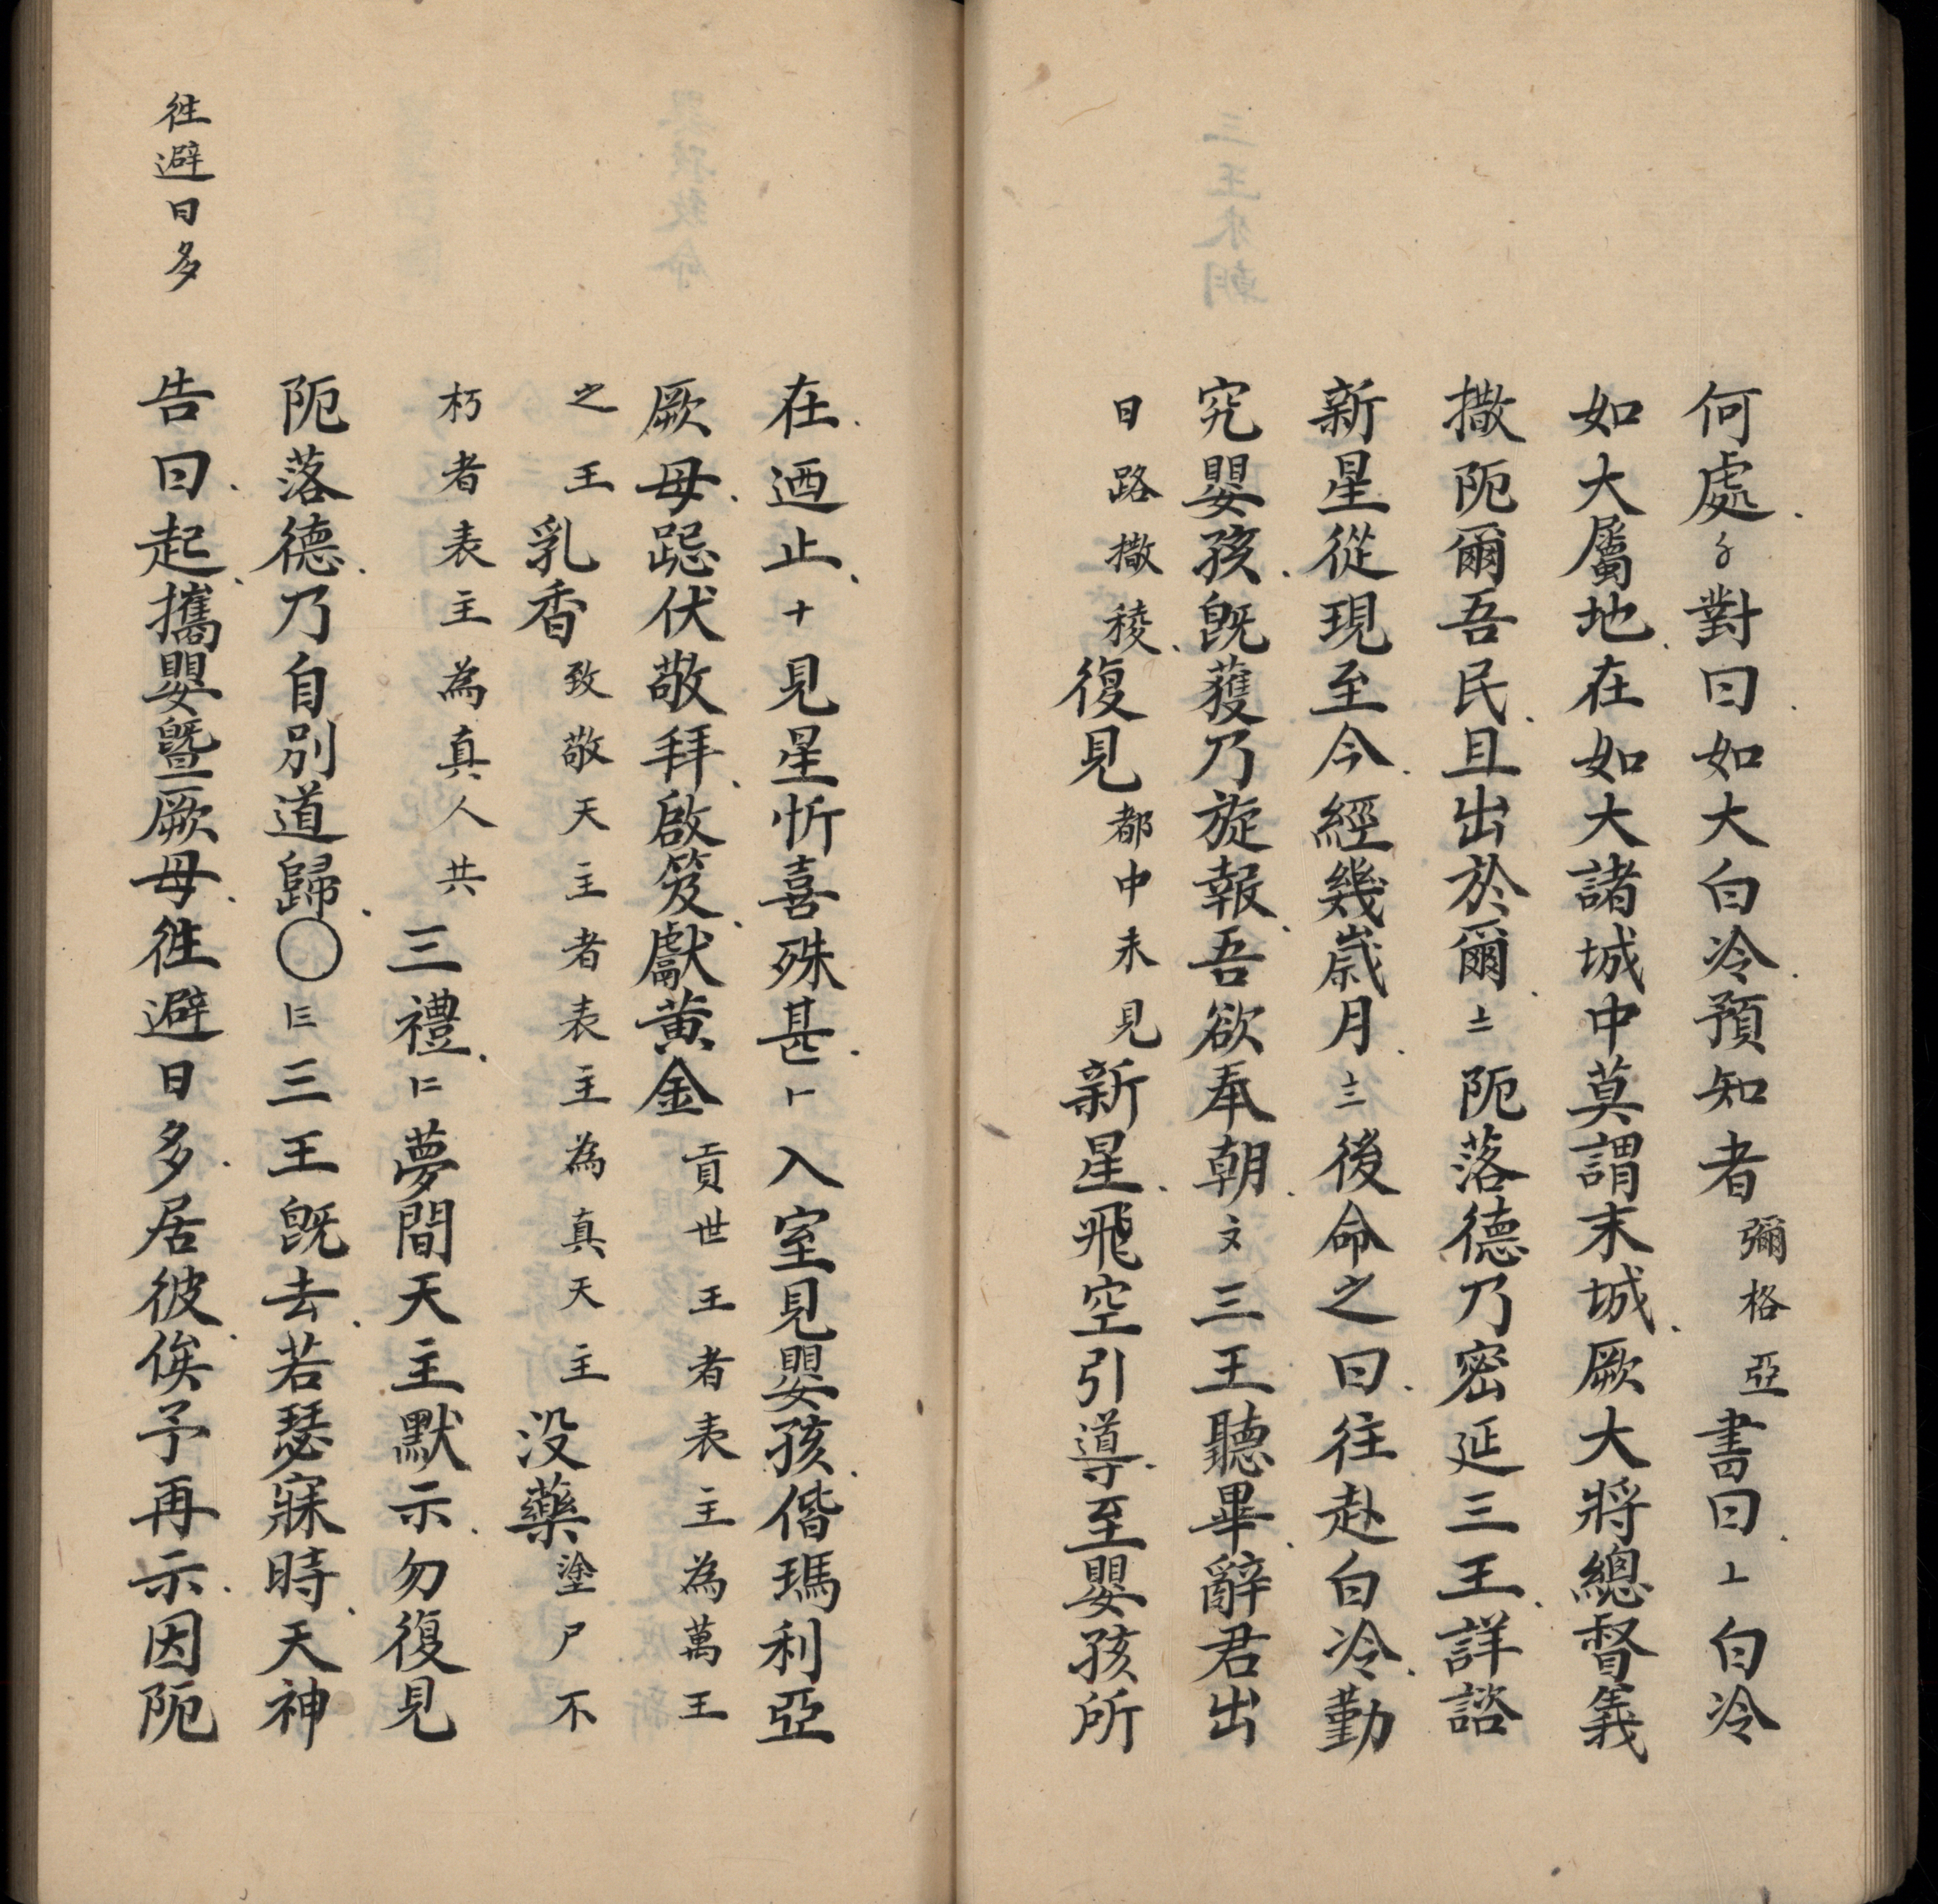 何處五對曰如大白冷預知者彌格亞書曰六白冷
如大屬地在如大諸城中莫謂末城厥大將總督義
撒阨爾吾民且出於爾七阨落德乃密延三王詳諮
新星從現至今經幾歲月八後命之曰往赴白冷勤
究嬰孩既獲乃旋報吾欲奉朝九三王聽畢辭君出
日路撒稜復見都中未見新星飛空引導至嬰孩所
在迺止十見星忻喜殊甚入室見嬰孩偕瑪利亞
厥母跽伏敬拜啟笈獻黃金貢世王者表主為萬王
之王乳香致敬天主者表主為真天主沒藥塗尸不
朽者表主為真人共三禮夢間天主默示勿復見
阨落德乃自別道歸〇三王既去若瑟寐時天神
告曰起攜嬰暨厥母徃避日多居彼俟予再示因阨
徃避日多